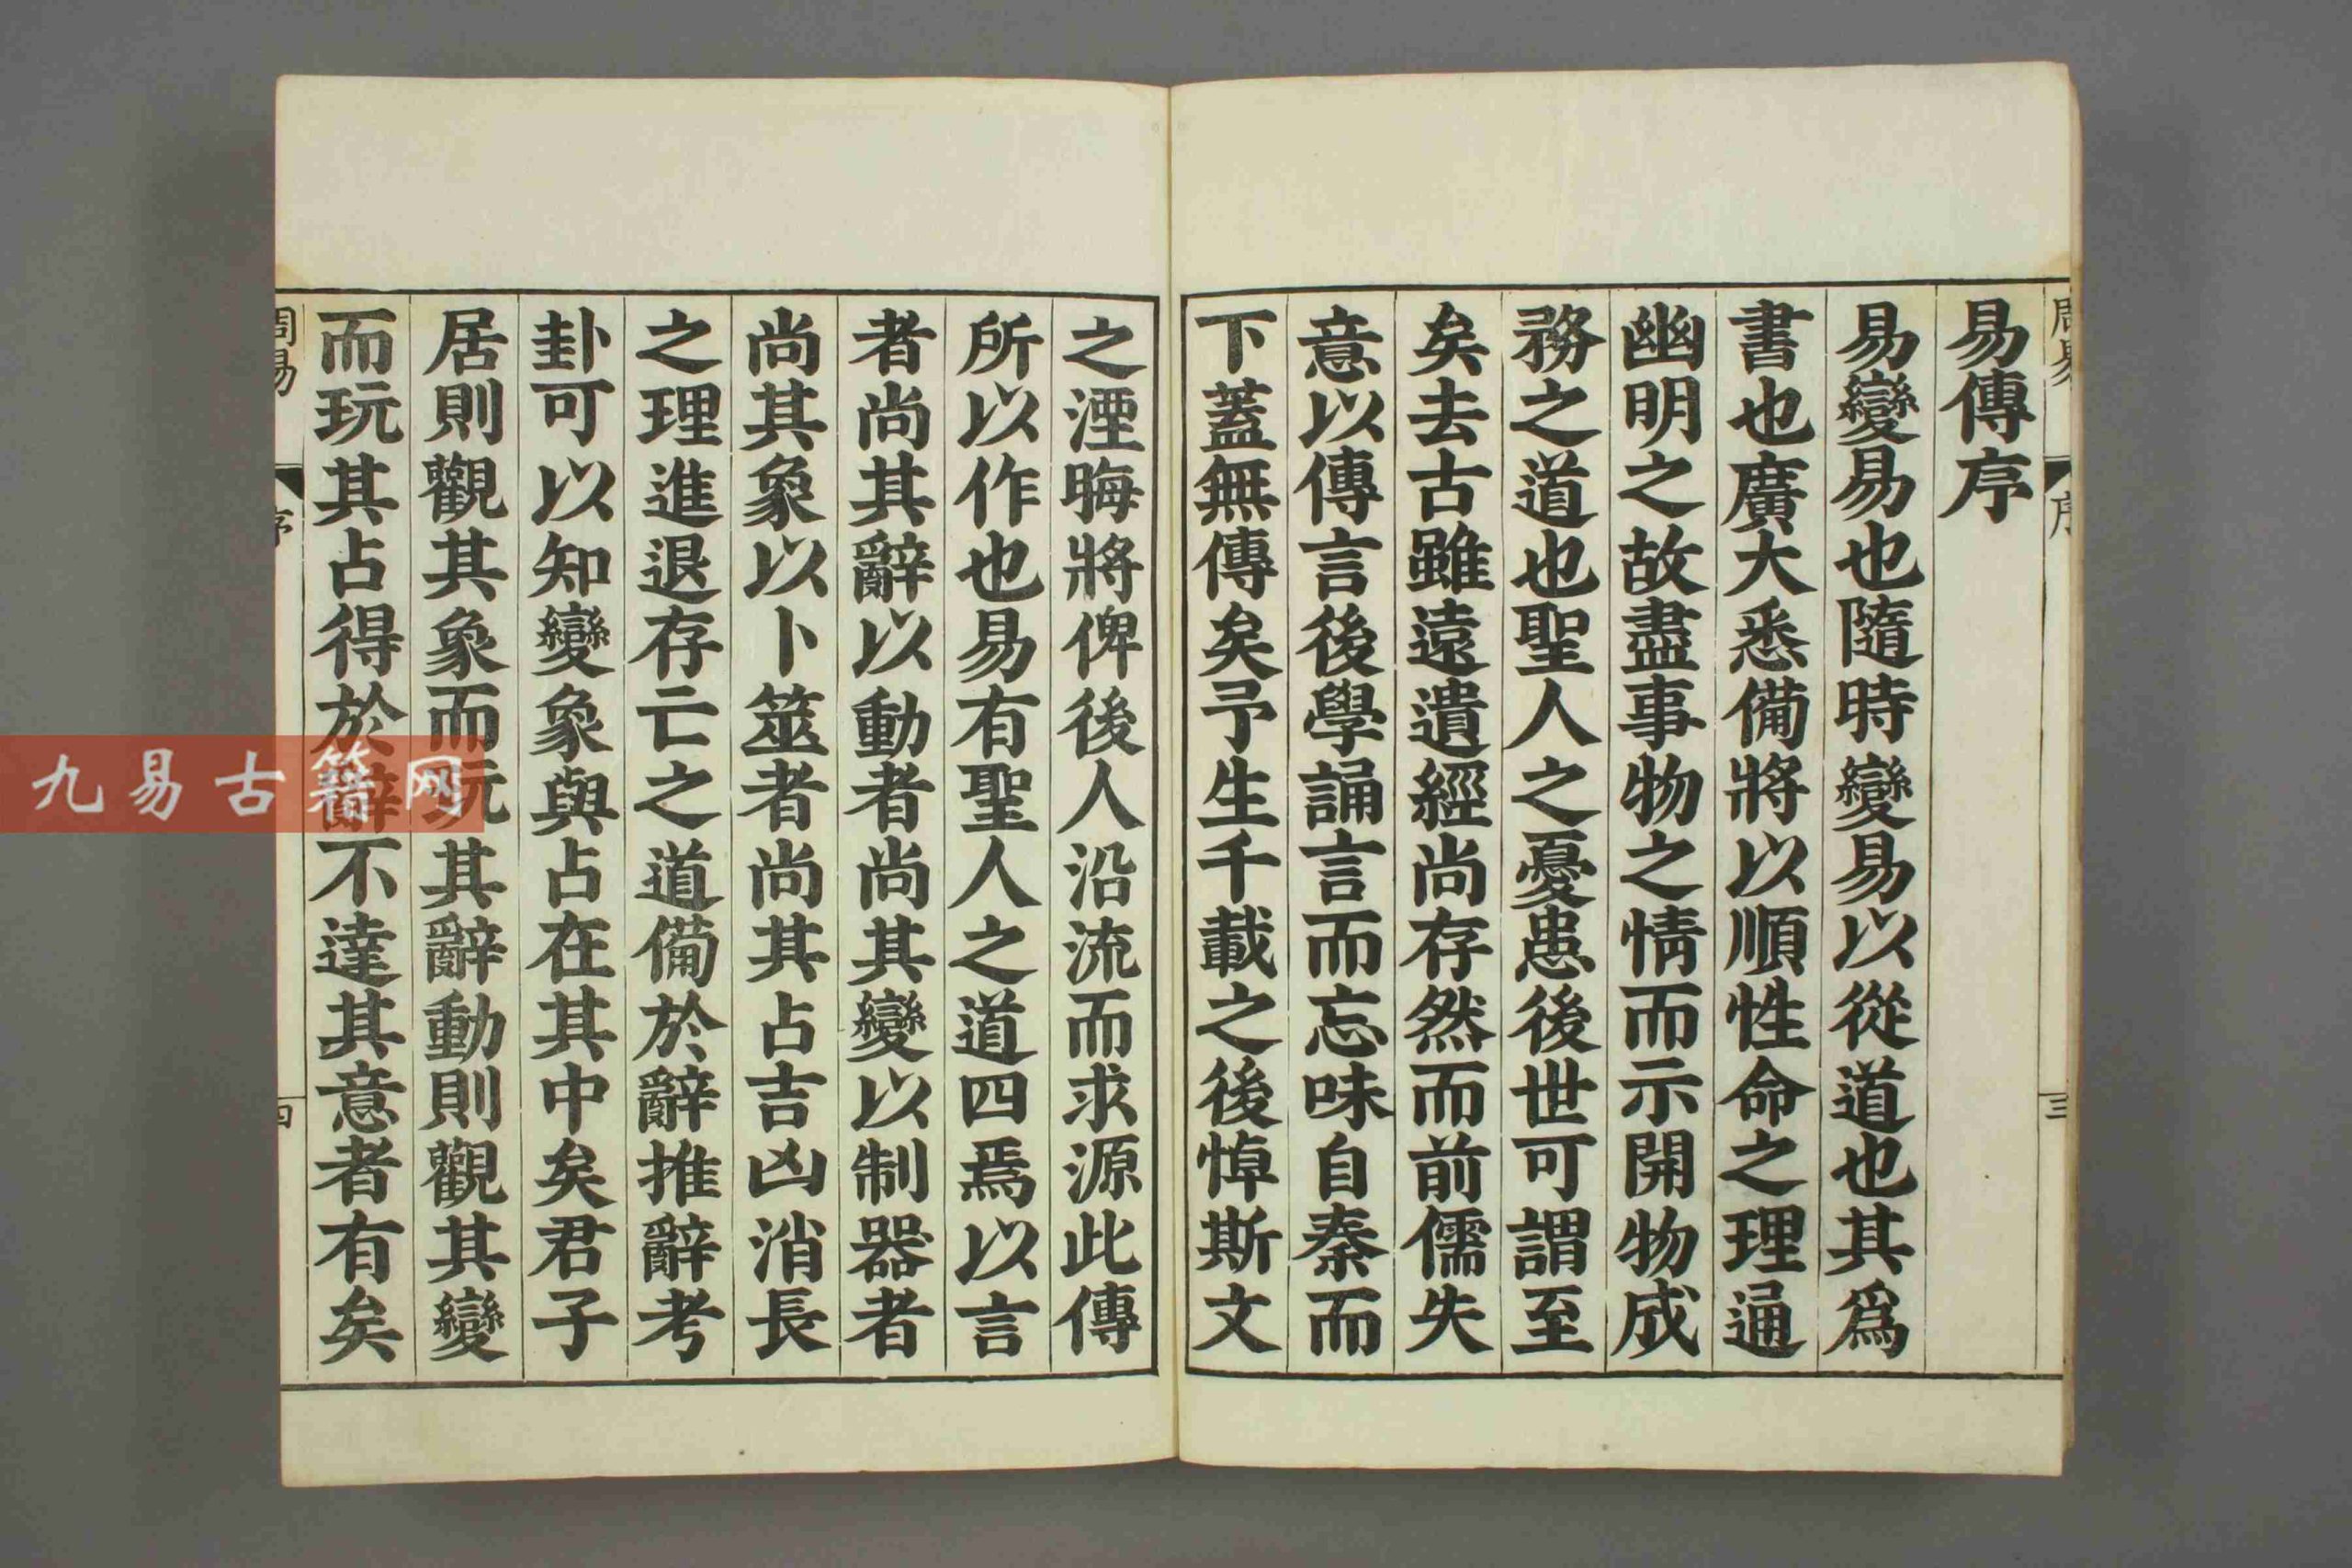 易傳序
易變易也隨時變易以從道也其爲
書也廣大悉備將以順性命之理通
幽明之故盡事物之情而示開物成
務之道也聖人之憂患後世可謂至
矣去古雖遠遺經尚存然而前儒失
意以傳言後學誦言而忘味自秦而
下蓋無傳矣予生千載之後悼斯文
之湮晦將俾後人沿流而求源此傳
所以作也易有聖人之道四焉以言
者尚其辭以動者尚其變以制器者
尚其象以卜筮者尚其占吉凶消長
之理進退存亡之道備於辭推辭考
卦可以知變象與占在其中矣君子
居則觀其象而玩其辭動則觀其變
而玩其占得於辭不達其意者有矣
周易
序
三
周易
序
四
九易古籍网